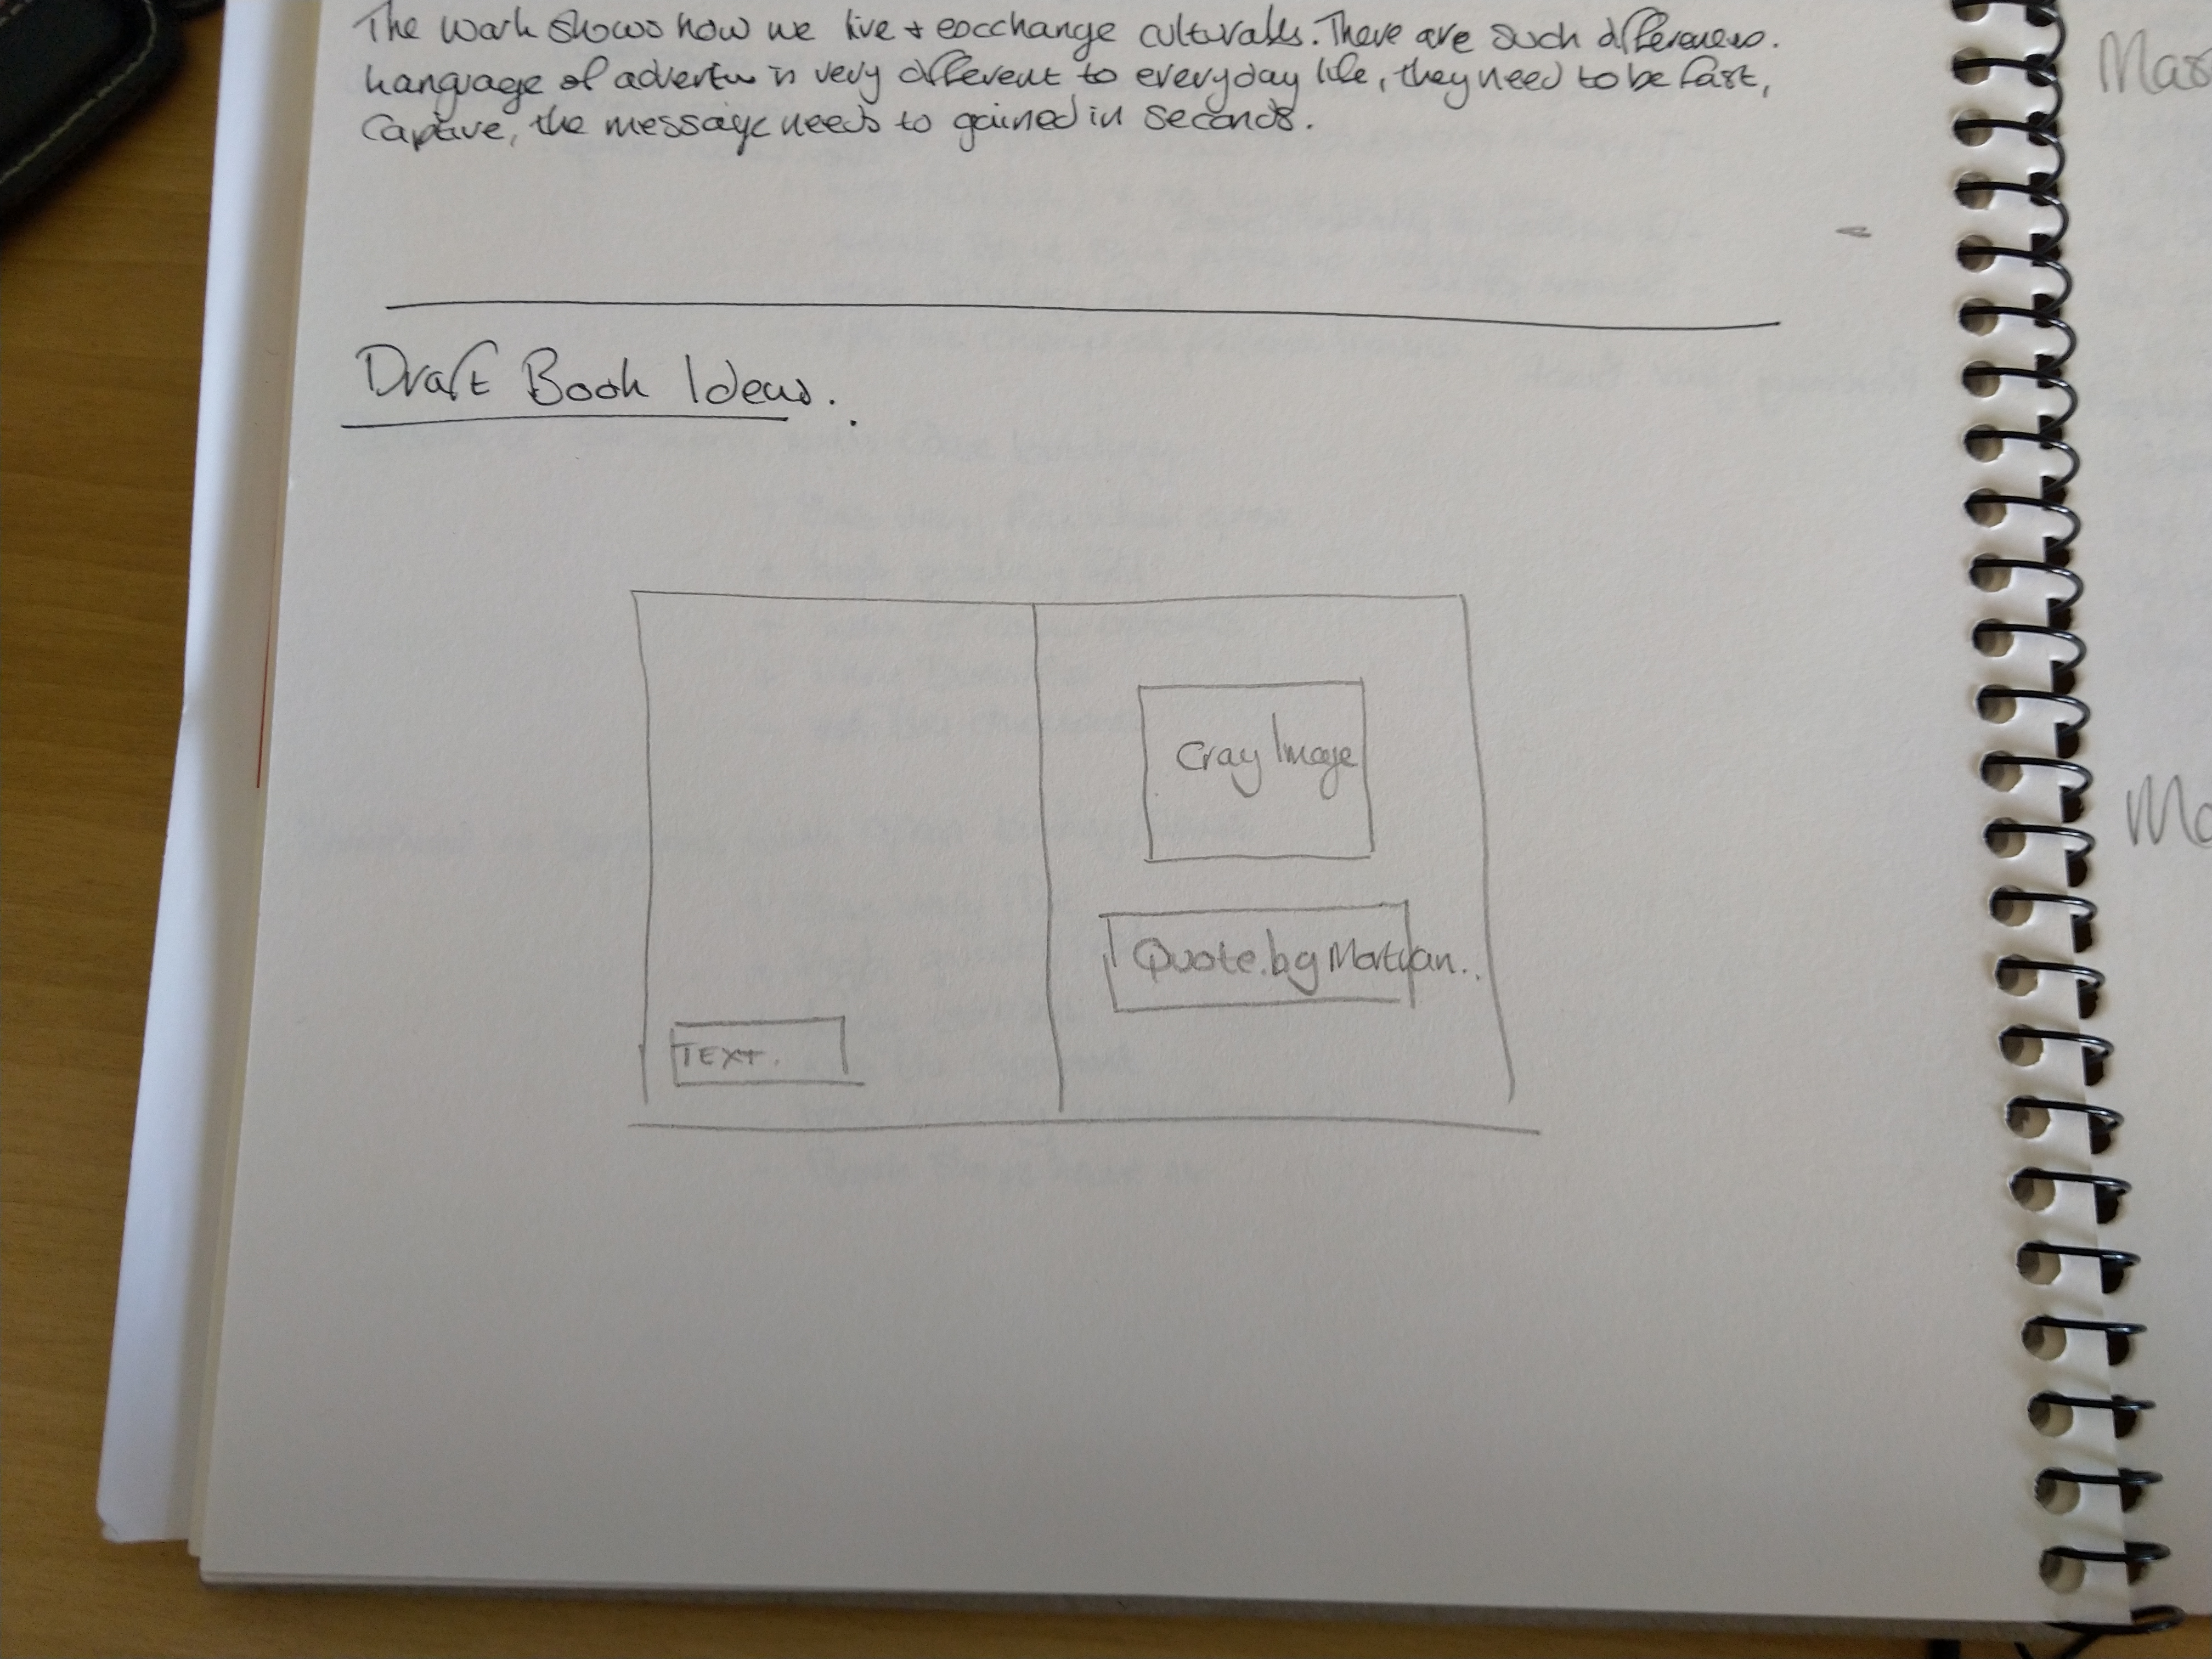 The work shows how we live + eocchange culturables. There are such differences.
Language of advert is very different to everyday life, they need to be fast,
Captive, the message needs to gained in seconds.
Draft Book Ideas.
Cray Image
Quote.by Martyan..
TEXT.
Mas
Mo